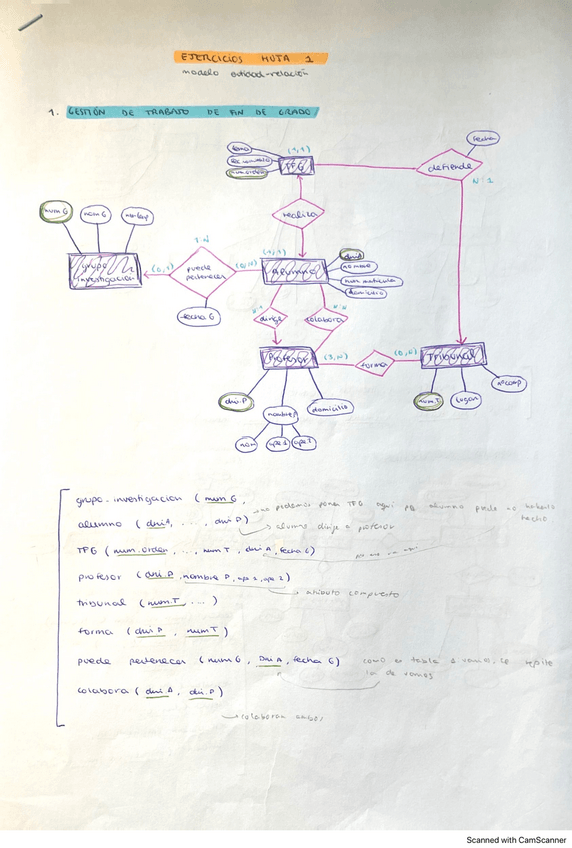 EJERCICIOS HOJA 1
modelo entidad-relación
1. GESTIÓN DE TRABAJO DE FIN DE GRADO
tema
num.orden
TFG
(1,1)
defiende
fecha
N:1
realiza
num G
nom G
grupo investigación
(0,1)
1:N
puede pertenecer
(0,N)
fecha G
(1,1)
Alumno
dni A
nombre
num matricula
domicilio
dirige
colabora
Profesor
(3,N)
forma
(0,N)
Tribunal
dni.P
nombre P
domicilio
nom
ape 1
ape 2
num.T
lugar
nºcomp
grupo-investigacion (num G,
no podemos poner TFG aqui pq alumno puede no haberlo hecho
alumno (dni A, ..., dni P)
alumno dirige a profesor
TFG (num.orden, ..., num T, dni A, fecha.G)
profesor (dni.P, nombre P, ape 1, ape 2)
atributo compuesto
tribunal (num.T, ...)
forma (dni.P, num T)
puede pertenecer (num G, Dni.A, fecha G)
como es tabla a varios, se
la de varios
colabora (dni.A, dni.P)
colaboran ambos
Scanned with CamScanner